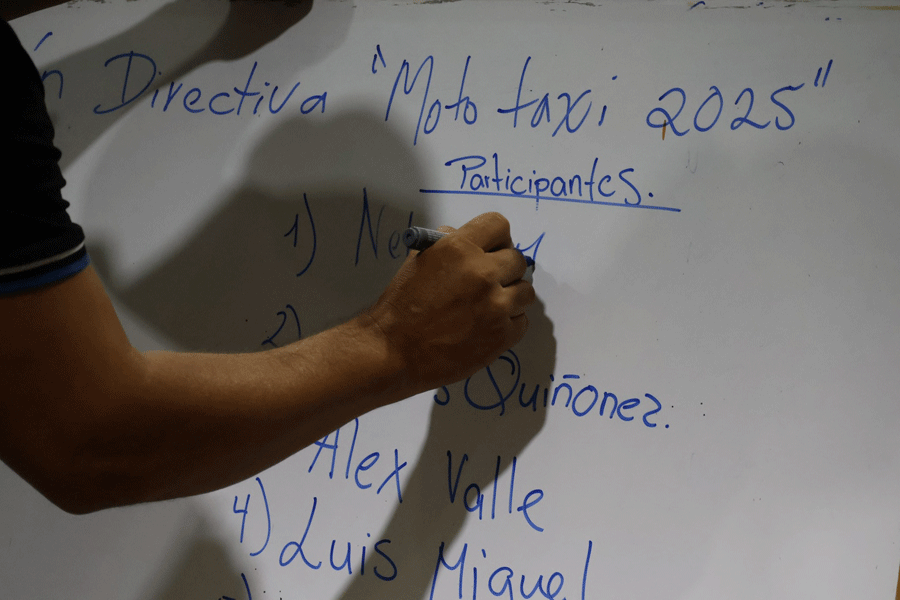 Directiva "Moto taxi 2025"
Participantes.
1)
2)
Quiñonez.
Alex Valle
4) Luis Miguel